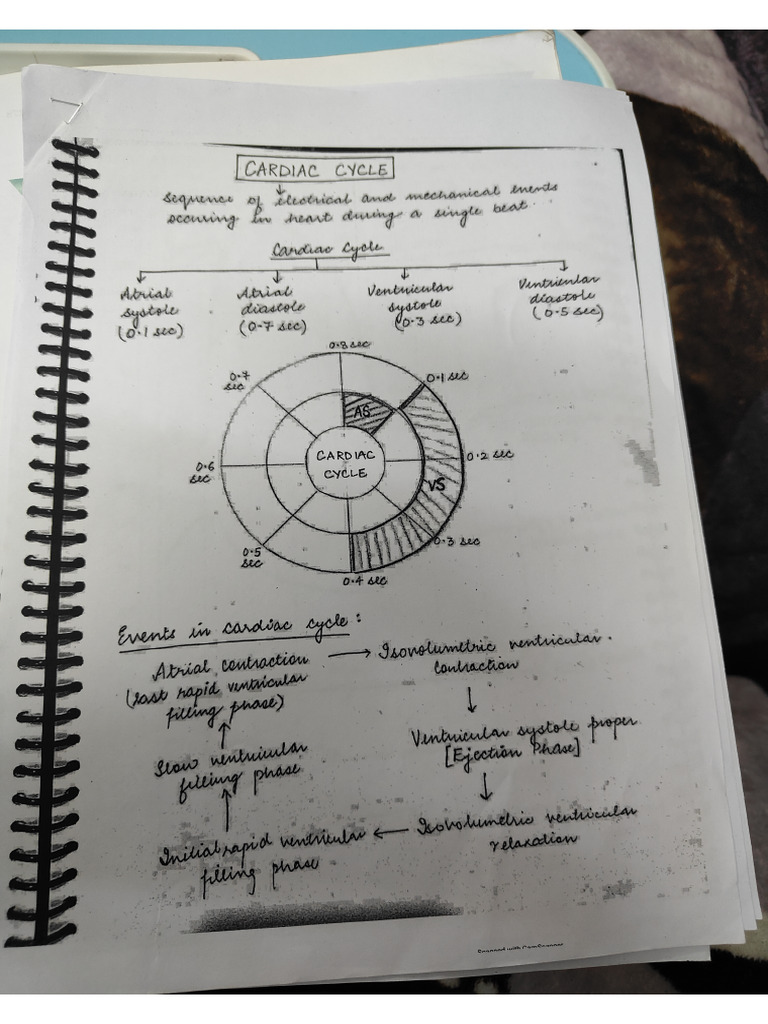 CARDIAC CYCLE
Sequence of electrical and mechanical events
occuring in heart during a single beat.
Cardiac Cycle
Atrial
systole
(0.1 sec)
Atrial
diastole
(0.7 sec)
Ventricular
systole
(0.3 sec)
Ventricular
diastole
(0.5 sec)
0.8 sec
0.1 sec
0.2 sec
0.3 sec
0.4 sec
0.5
sec
0.6
sec
0.7
sec
AS
VS
CARDIAC
CYCLE
Events in cardiac cycle:
Atrial contraction
(last rapid ventricular
filling phase)
Isovolumetric ventricular
contraction
Ventricular systole proper
[Ejection Phase]
Isovolumetric ventricular
relaxation
Initial rapid ventricular
filling phase
Slow ventricular
filling phase
Scanned with CamScanner